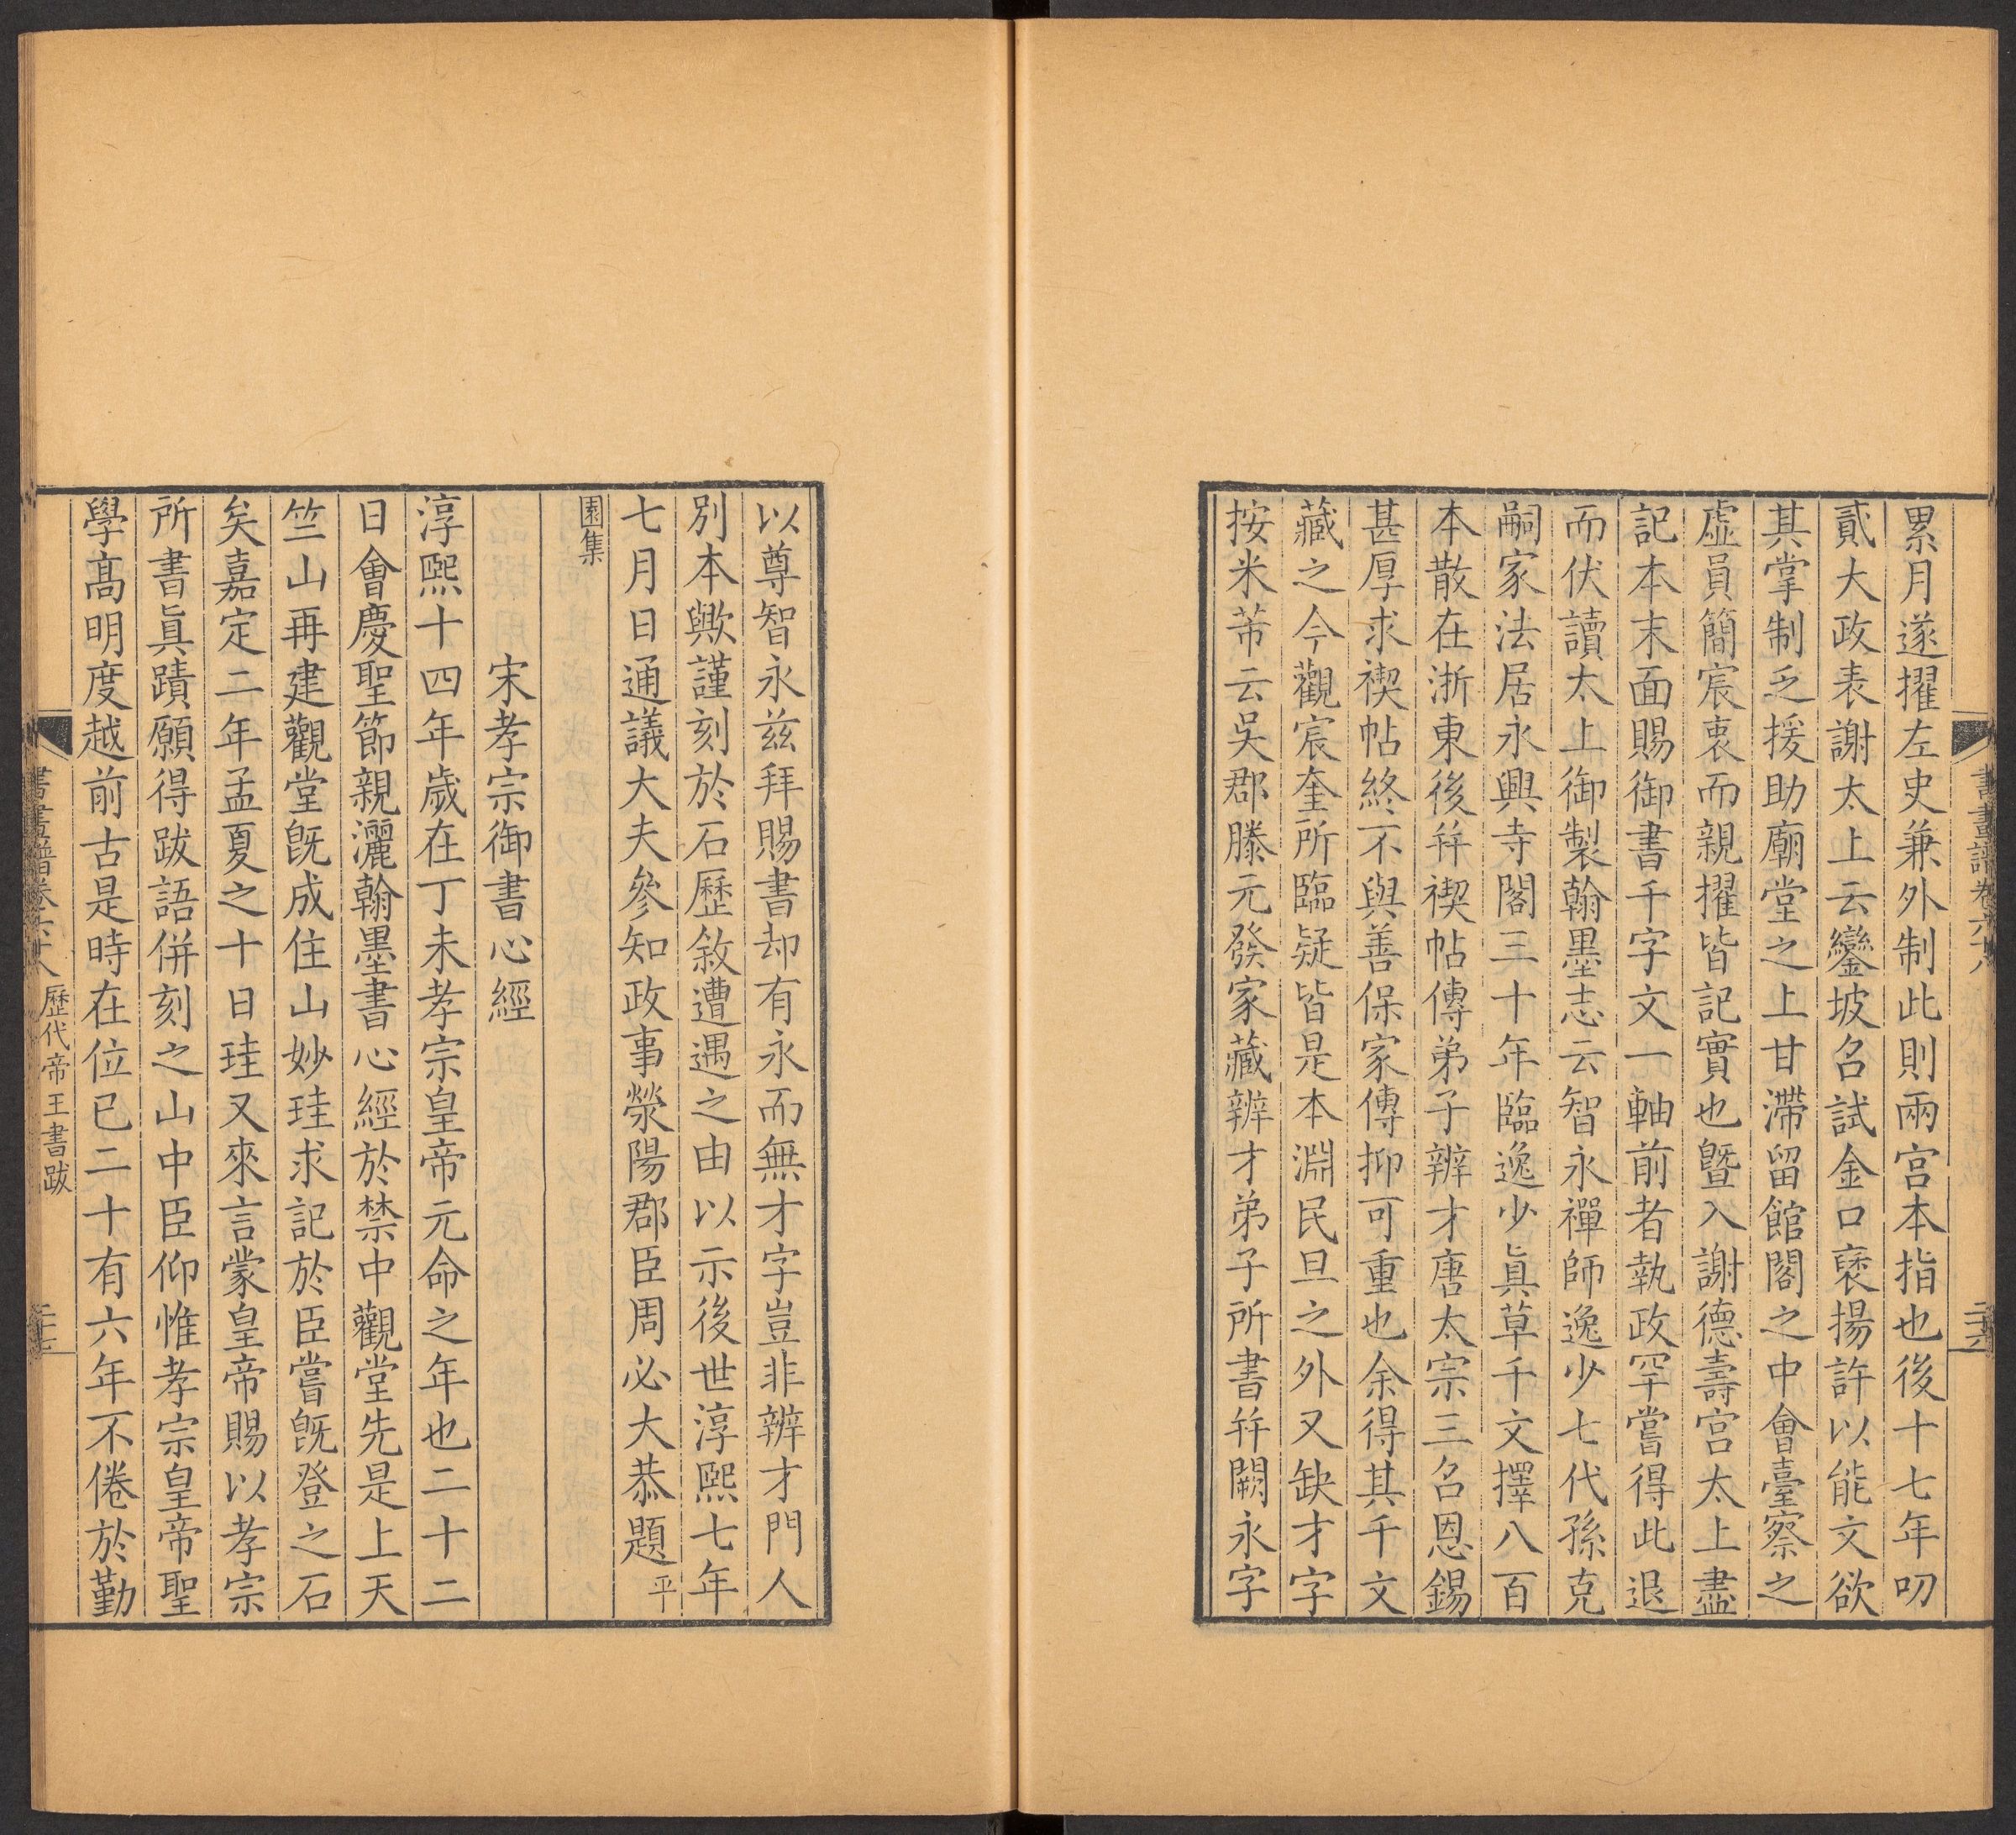 累月遂擢左史兼外制此則兩宮本指也後十七年叨
貳大政表謝太上云鑾坡召試金口襃揚許以能文欲
其掌制乏援助廟堂之上甘滯留館閣之中會臺察之
虛員簡宸衷而親擢皆記實也曁入謝德壽宮太上盡
記本末面賜御書千字文一軸前者執政罕嘗得此退
而伏讀太上御製翰墨志云智永禪師逸少七代孫克
嗣家法居永興寺閣三十年臨逸少眞草千文擇八百
本散在浙東後幷禊帖傳弟子辨才唐太宗三召恩錫
甚厚求禊帖終不與善保家傳抑可重也余得其千文
藏之今觀宸奎所臨疑皆是本淵民旦之外又缺才字
按米芾云吳郡滕元發家藏辨才弟子所書幷闕永字
書畫譜卷六十八
二十六
以尊智永兹拜賜書却有永而無才字豈非辨才門人
別本歟謹刻於石歷敘遭遇之由以示後世淳熙七年
七月日通議大夫參知政事滎陽郡臣周必大恭題平
園集
宋孝宗御書心經
淳熙十四年歲在丁未孝宗皇帝元命之年也二十二
日會慶聖節親灑翰墨書心經於禁中觀堂先是上天
竺山再建觀堂旣成住山妙珪求記於臣嘗旣登之石
矣嘉定二年孟夏之十日珪又來言蒙皇帝賜以孝宗
所書眞蹟願得跋語併刻之山中臣仰惟孝宗皇帝聖
學高明度越前古是時在位已二十有六年不倦於勤
書畫譜卷六十八 歷代帝王書跋
二十七